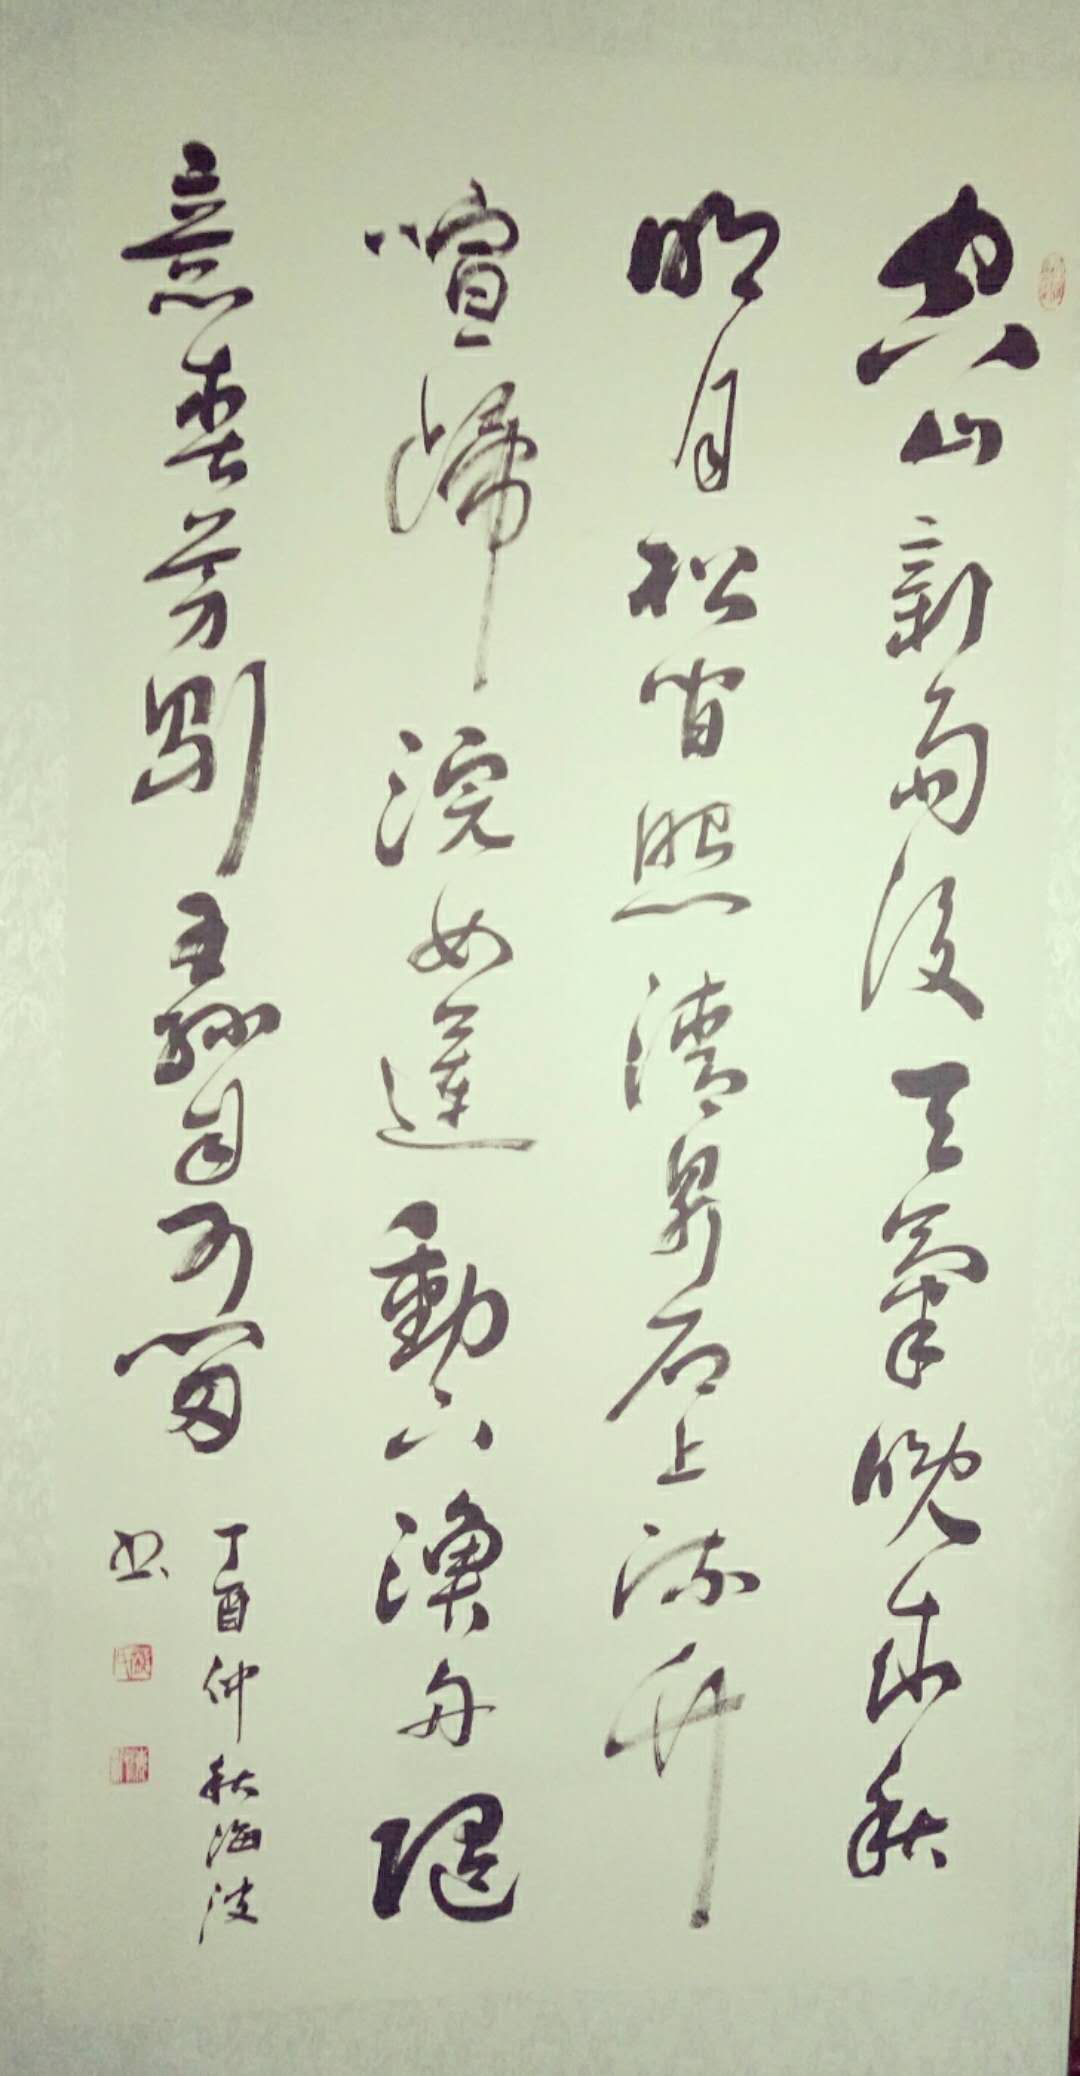 空山新雨後天氣晚來秋
明月松間照清泉石上流竹
喧歸浣女蓮動下漁舟隨
意春芳歇王孫自可留
丁酉仲秋海波
书